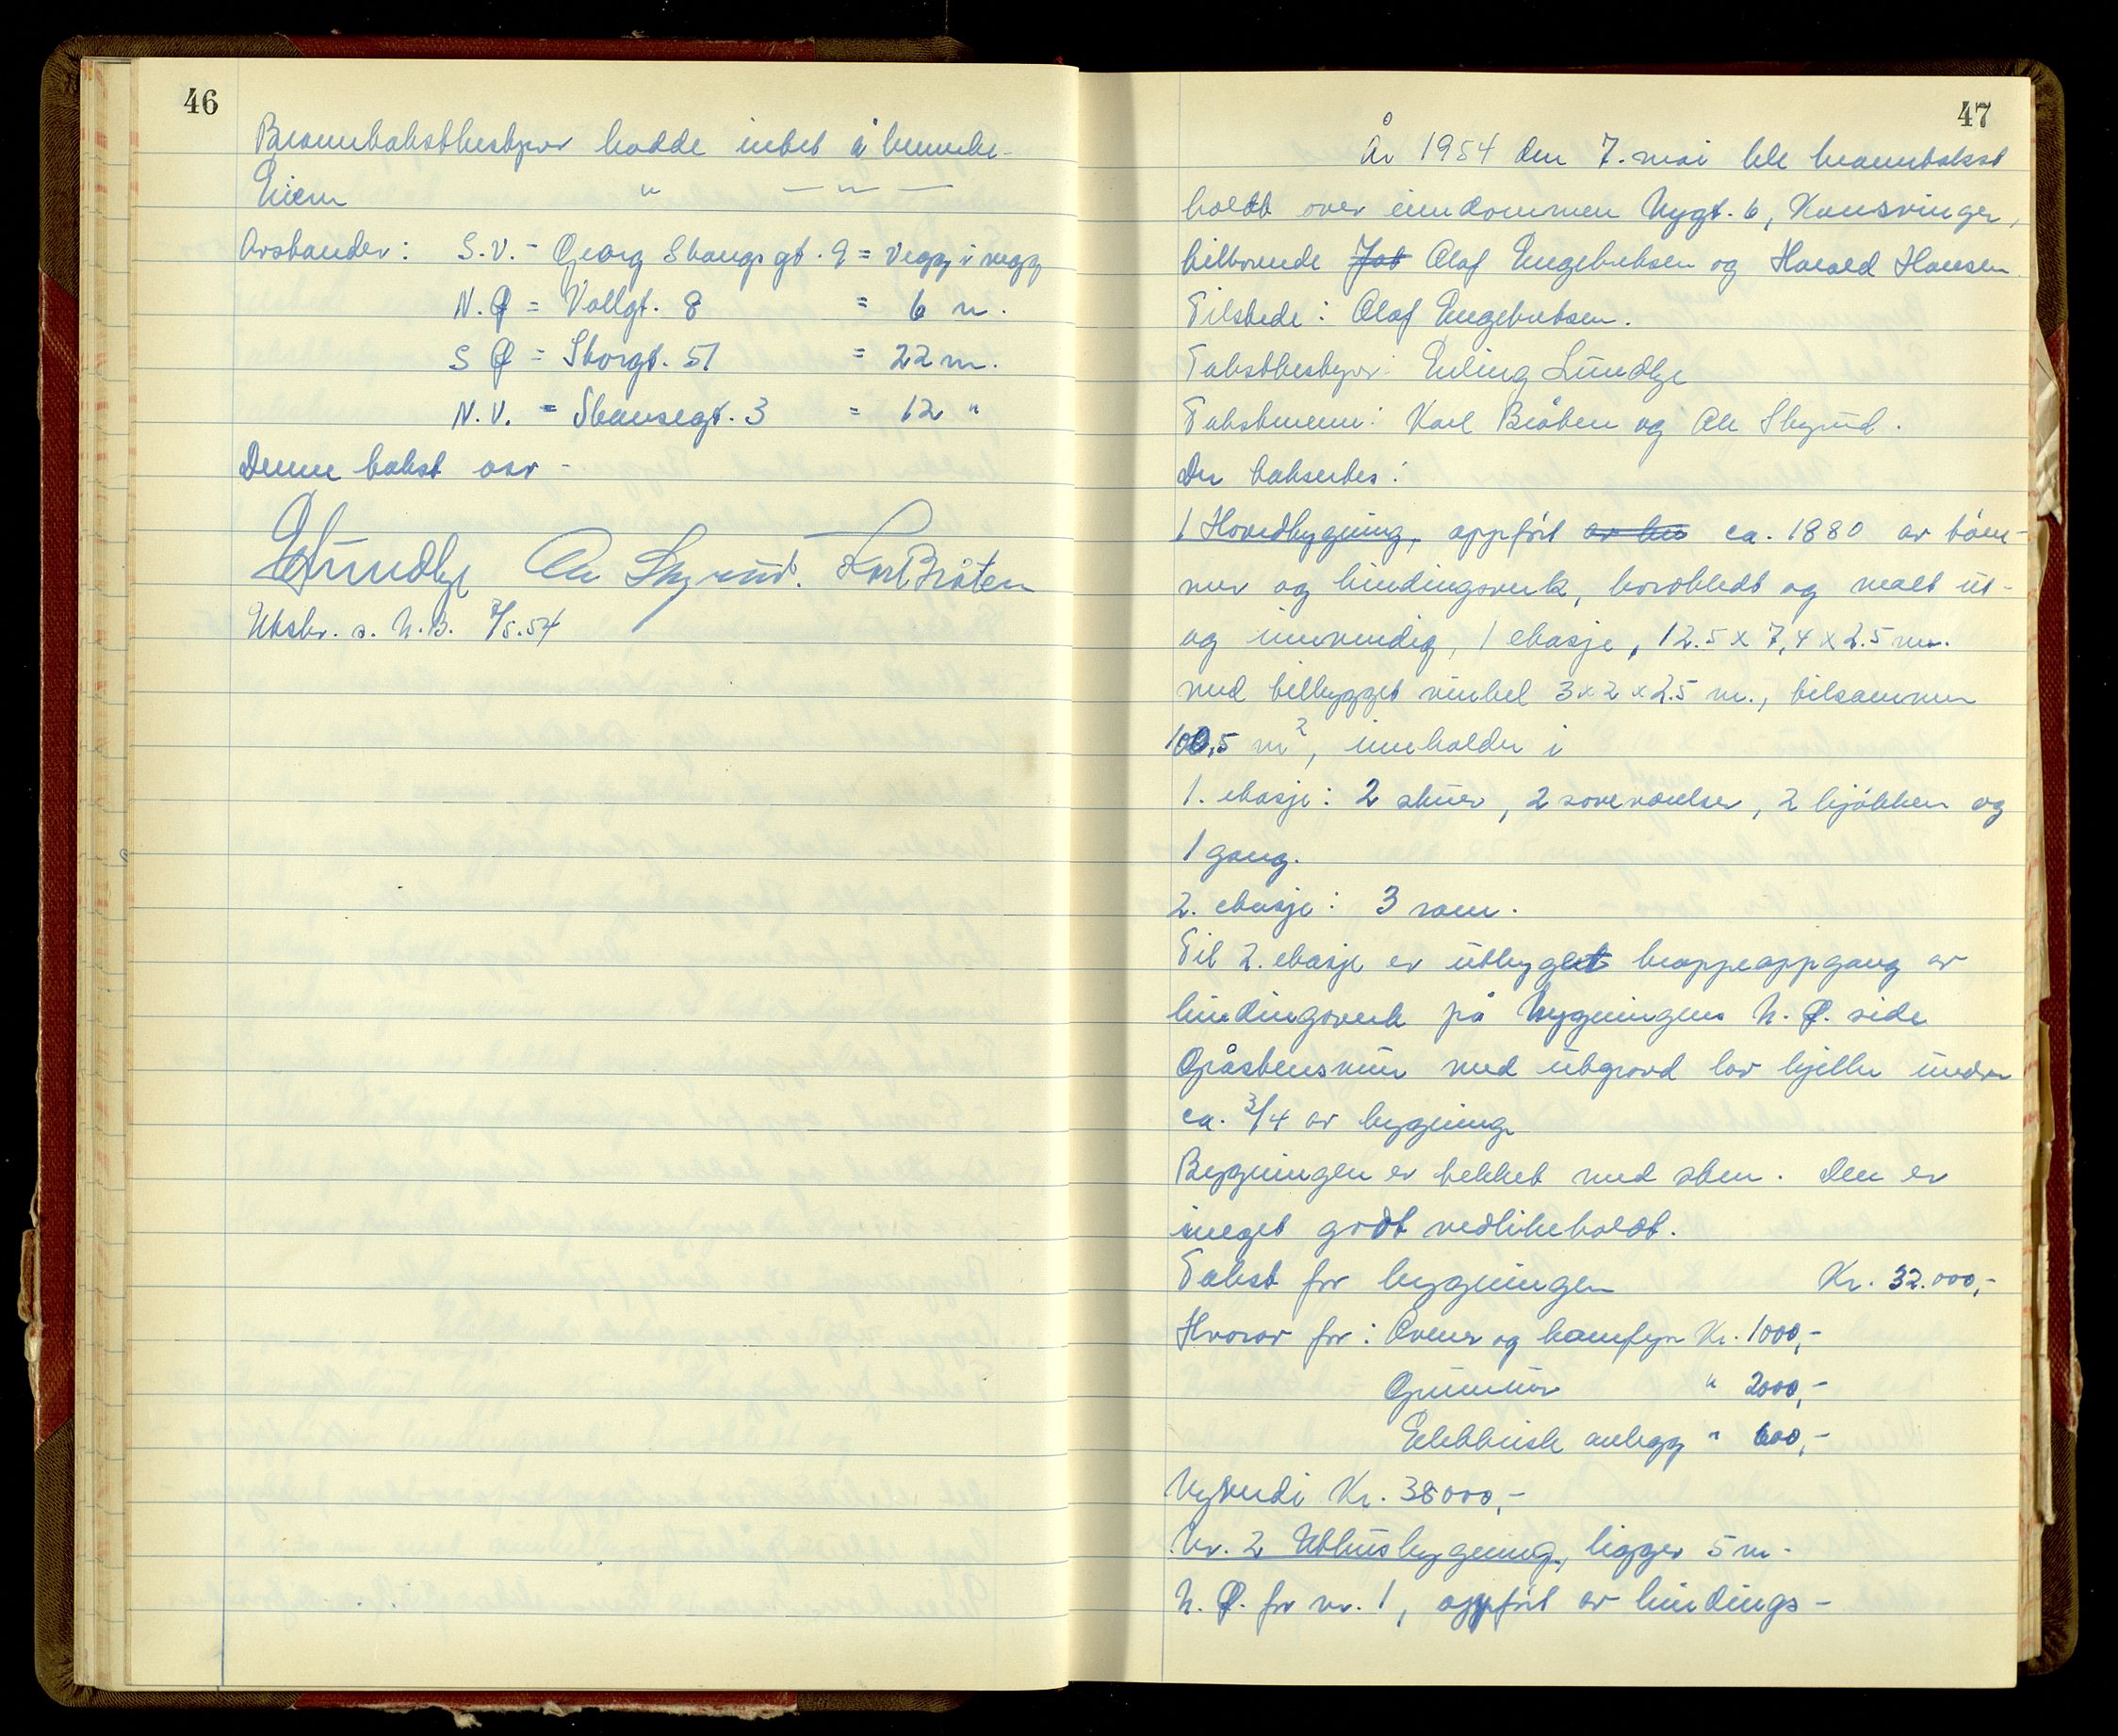 46
Branntakstbestyrer hadde intet å bemerke.
Eieren " — " —
Avstander: S.V. = Georg Stangs gt. 9 = Vegg i vegg
N.Ø = Vollgt. 8 = 6 m.
S Ø = Storgt. 51 = 22 m.
N.V. = Skansegt. 3 = 12 "
Denne takst osv -
E Lundbye Ole Skyrud. Karl Bråten
Utskr. s. N.B. 7/5.54
47
År 1954 den 7. mai ble branntakst
holdt over eiendommen Nygt. 6, Kongsvinger,
tilhørende Olaf Engebretsen og Harald Hansen
Tilstede: Olaf Engebretsen.
Takstbestyrer: Erling Lundbye
Takstmenn: Karl Bråten og Ole Skyrud.
Der takseres:
1 Hovedbygning, oppført av ca. 1880 av tøm-
mer og bindingsverk, bordkledt og malt ut-
og innvendig, 1 etasje, 12.5 x 7,4 x 2.5 m.
med tilbygget vinkel 3 x 2 x 2.5 m., tilsammen
100,5 m², inneholder i
1. etasje: 2 stuer, 2 soveværelser, 2 kjøkken og
1 gang.
2. etasje: 3 rom.
Til 2. etasje er utbygget trappeoppgang av
bindingsverk på bygningens N.Ø. side
Gråstensmur med utgravd lav kjeller under
ca. 3/4 av bygning
Bygningen er tekket med sten. Den er
meget godt vedlikeholdt.
Takst for bygningen Kr. 32.000,-
Hvorav for: Ovner og komfyr Kr. 1000,-
Grunnmur " 2000,-
Elektrisk anlegg " 600,-
Nyverdi Kr. 38000,-
Nr. 2 Uthusbygning, ligger 5 m.
N.Ø. for nr. 1, oppført av bindings-